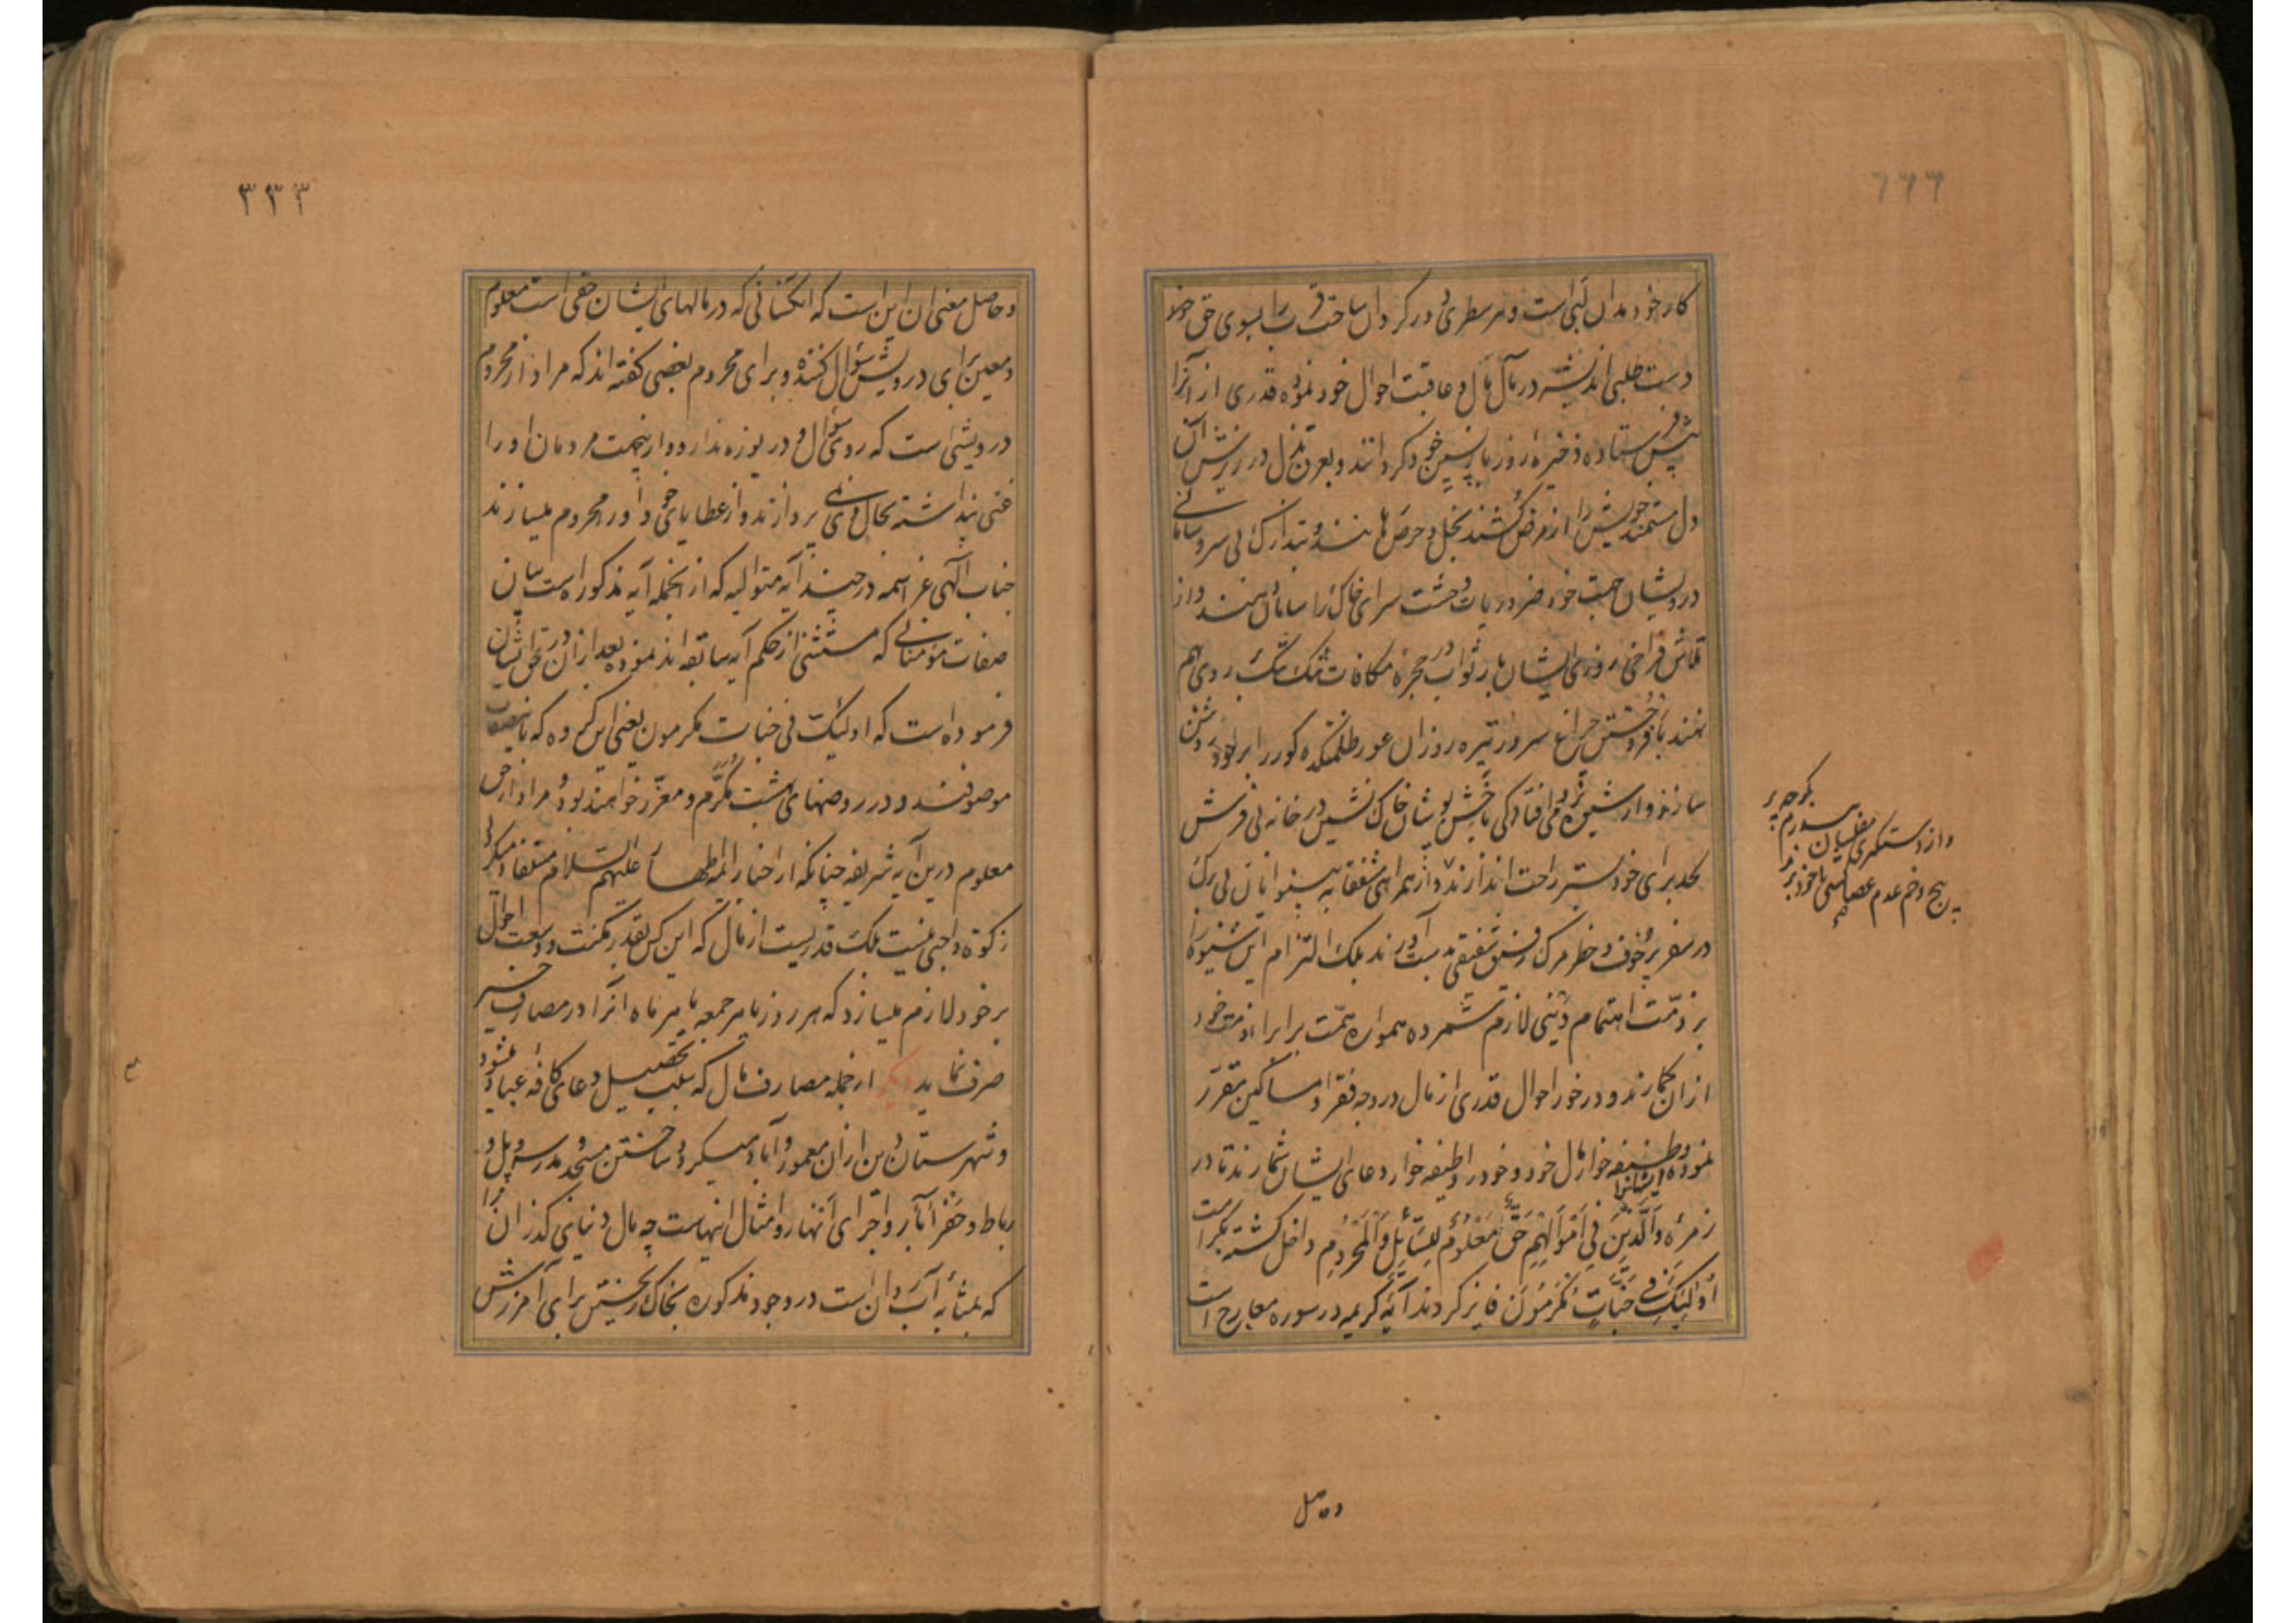 ۶۶۶
کار خود بدان لبی است و هر سطری در کردال ساحت قرب بسوی حق
دست طلبی اندیشه در مآل مال و عاقبت احوال خود نموده قدری از آنرا
پیش فرستاده ذخیرهٔ روز بازپسین خود گردانند و بعرق بذل در ریزش آن
دل مستمند خویش را از مرض کشنده بخل و حرص رهانند و بتدارک بی سر و سامانی
درویشان جهت خود ضروریات وحشت سرای خاک را سامان دهند و از
تلاش فراخی روزی ایشان بار ثواب در حجرهٔ مکافات تنگ تنگ بر روی هم
نهند بافروختن چراغ سرور تیره روزان عور ظلمتکده گور را بر خود روشن
سازند و از شیوهٔ افتادگی با خش پوشان خاک نشین در خانه بی فرش
لحد برای خود بستر راحت اندازند و از همراهی شفقانه بینوایان بی برگ
در سفر پر خوف و خطر مرگ رفیق شفیقی بدست آورند بلکه التزام این شیوه را
بر ذمت اهتمام دینی لازم شمرده همواره همت بر ابراء ذمت خود
از ان گمارند و در خور احوال قدری از مال در وجه فقرا و مساکین مقرر
نموده ایشانرا وظیفه خوار مال خود و خود را وظیفه خوار دعای ایشان شمارند تا در
زمرهٔ وَالَّذِینَ فِی اَمْوَالِهِمْ حَقٌّ مَعْلُومٌ لِلسَّائِلِ وَالْمَحْرُومِ داخل گشته بکرامت
اُولئِکَ فِی جَنَّاتٍ مُکْرَمُونَ فایز گردند آیهٔ کریمه در سوره معارج است
و از دستگیری مفلسان
وحاصل
۳۳۳
و حاصل معنی ان این است که انکسانی که در مالهای ایشان حقی است معلوم
و معین برای درویش سؤال کننده و برای محروم بعضی گفته اند که مراد از محروم
درویشی است که روی سؤال و دریوزه ندارد و ازینجهت مردمان او را
غنی پنداشته بحال وی نمی پردازند و از عطایای خود او را محروم میسازند
جناب الهی عز اسمه در چند آیه متوالیه که از انجمله آیه مذکور است بیان
صفات مؤمنانی که مستثنی از حکم آیه سابقه اند نموده بعد از ان در حق ایشان
فرموده است که اولئک فی جنات مکرمون یعنی این گروه که باینصفات
موصوفند در روضهای بهشت مکرم و معزز خواهند بود و مراد از حق
معلوم درین آیه شریفه چنانکه از اخبار ائمه اطهار علیهم السلام مستفاد میگردد
زکوة واجبی نیست بلکه قدریست از مال که این کس بقدر مکنت و وسعت احوال
بر خود لازم میسازد که هر روز یا هر جمعه یا هر ماه آنرا در مصارف خیر
صرف نماید دیگر از جمله مصارف مال که سبب تحصیل دعای کافه عباد میشود
و شهرستان دین از ان معمور و آباد میگردد ساختن مسجد و مدرسه و پل و
رباط و حفر آبار و اجرای انهار و امثال اینهاست چه مال دنیای گذران را
که بمثابه آب روان است در وجوه مذکوره بخاک ریختن برای آمرزش